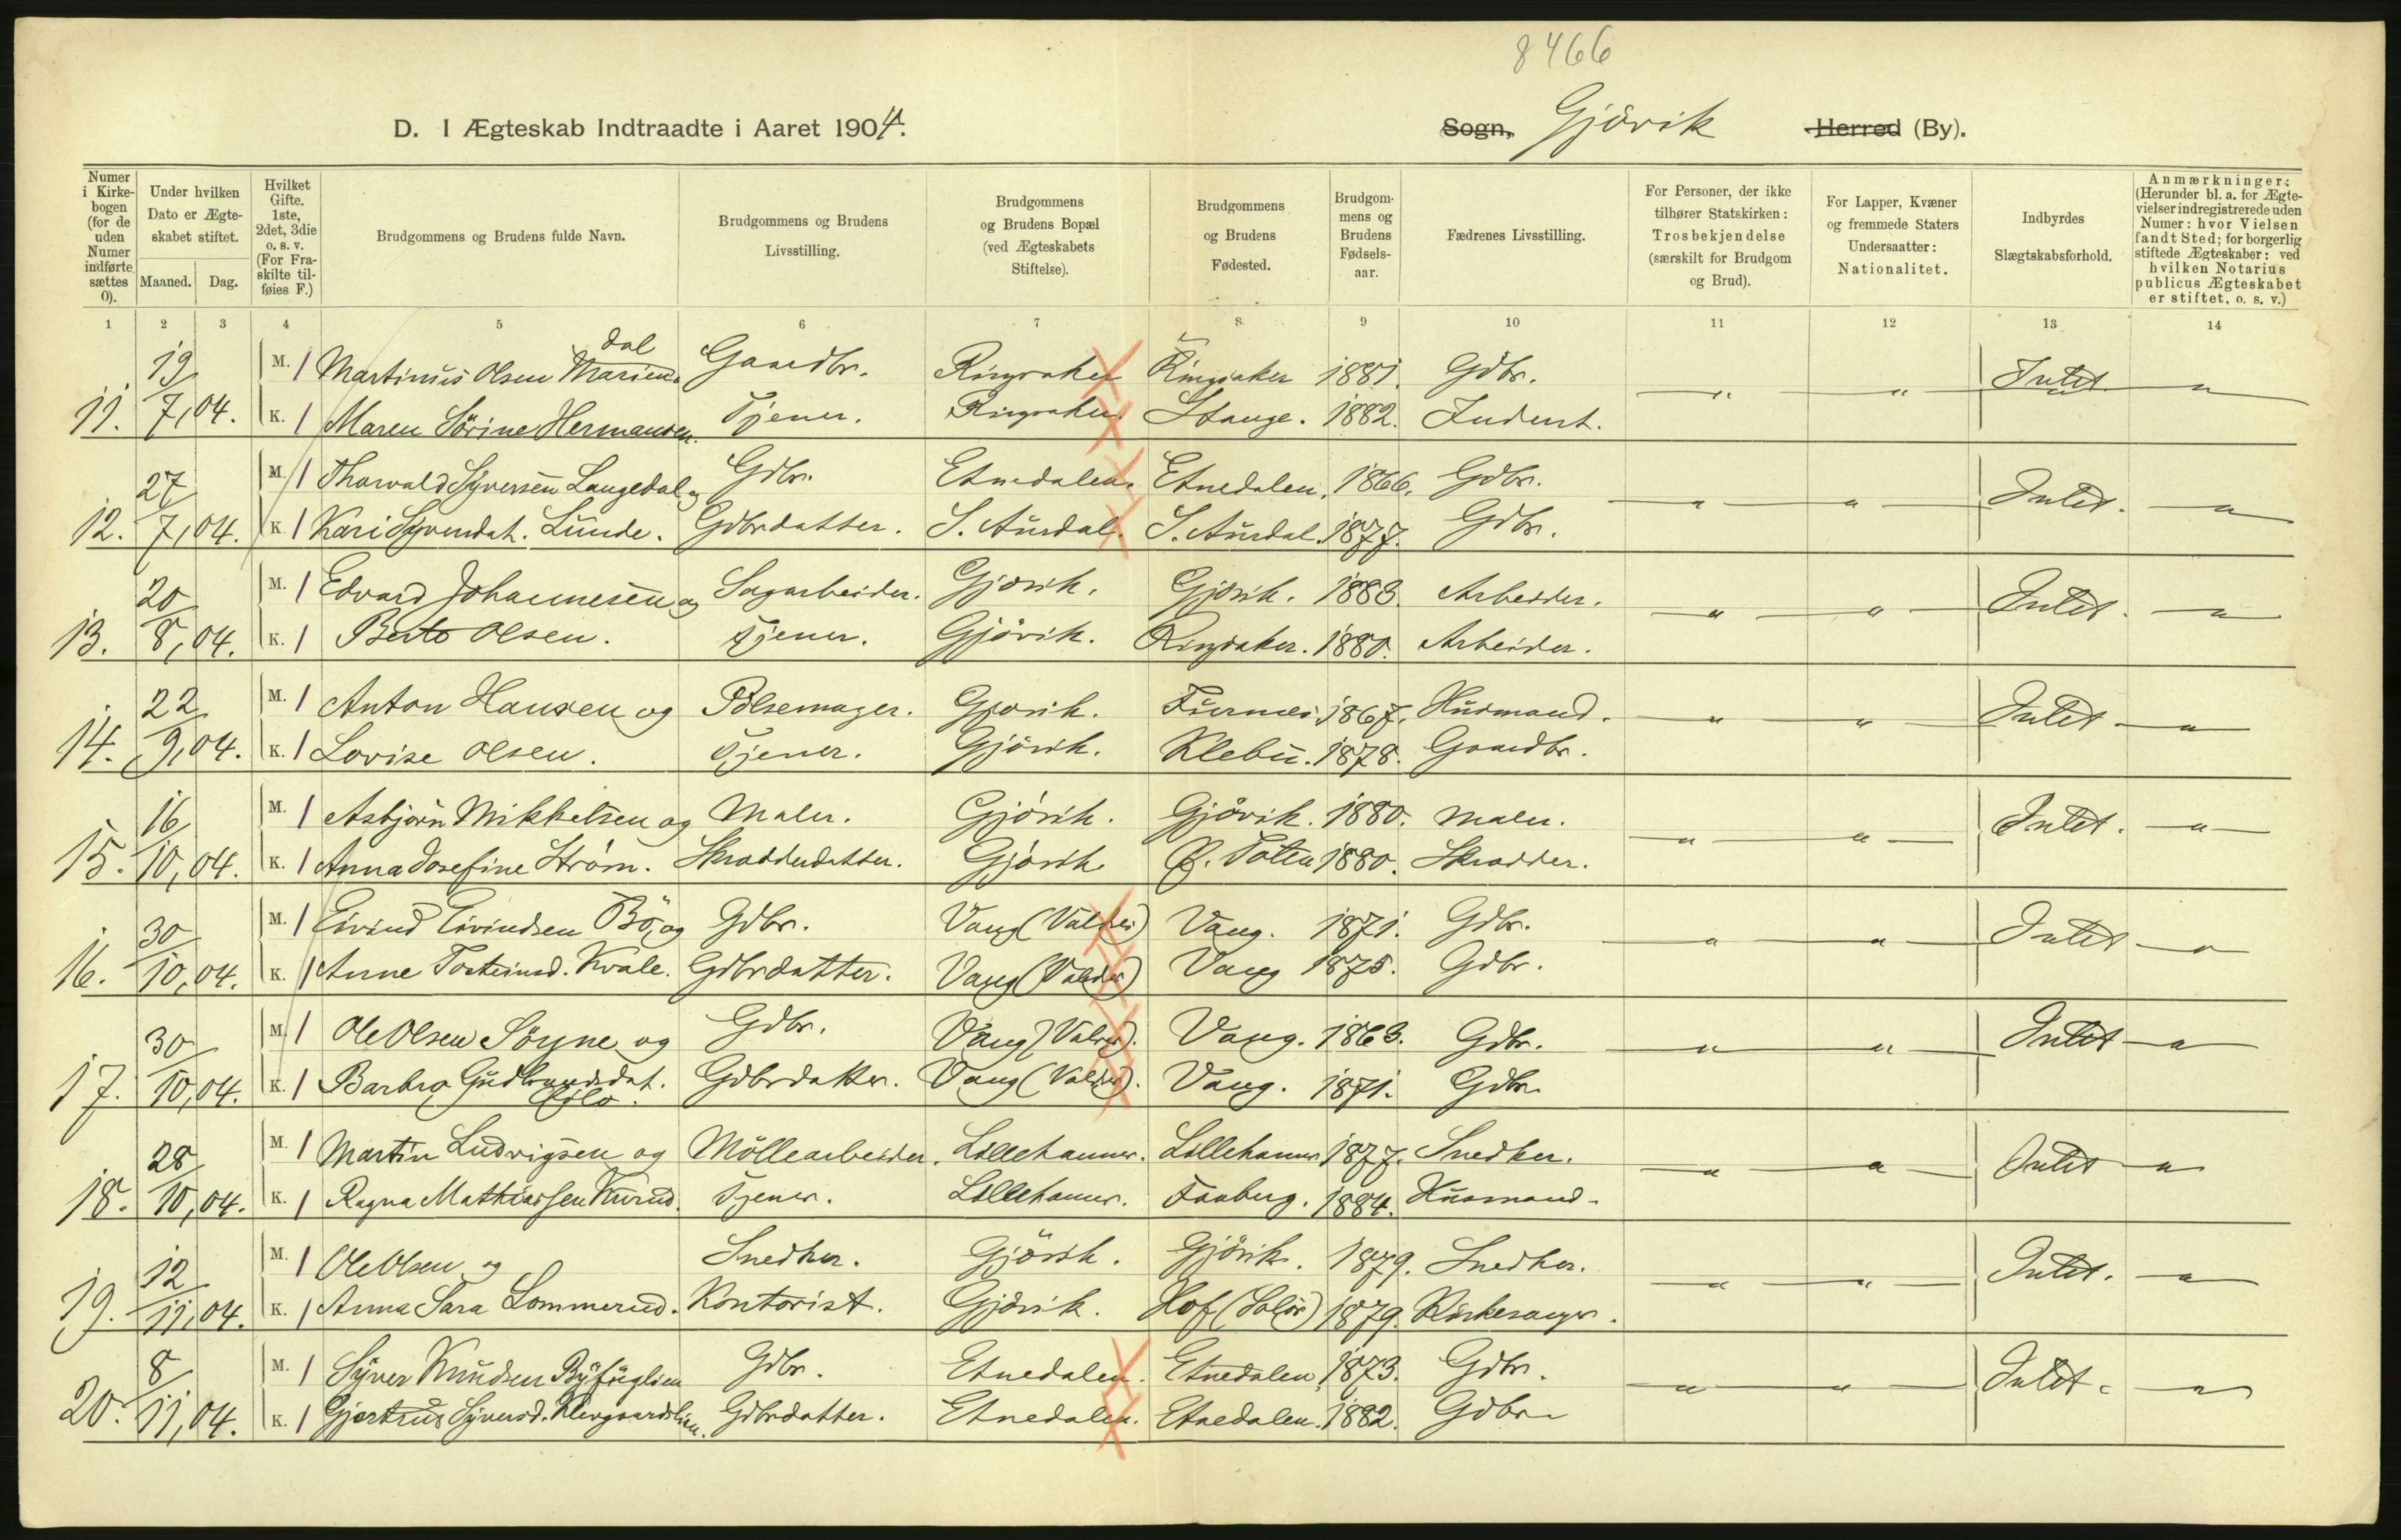 8466
D. I Ægteskab Indtraadte i Aaret 1904.
Sogn, Gjövik Herred (By).
Numer i Kirkebogen (for de uden Numer indførte sættes 0).
Under hvilken Dato er Ægteskabet stiftet.
Maaned. Dag.
Hvilket Gifte. 1ste, 2det, 3die o. s. v. (For Fraskilte tilføies F.)
Brudgommens og Brudens fulde Navn.
Brudgommens og Brudens Livsstilling.
Brudgommens og Brudens Bopæl (ved Ægteskabets Stiftelse).
Brudgommens og Brudens Fødested.
Brudgommens og Brudens Fødselsaar.
Fædrenes Livsstilling.
For Personer, der ikke tilhører Statskirken: Trosbekjendelse (særskilt for Brudgom og Brud).
For Lapper, Kvæner og fremmede Staters Undersaatter: Nationalitet.
Indbyrdes Slægtskabsforhold.
Anmærkninger: (Herunder bl. a. for Ægtevielser indregistrerede uden Numer: hvor Vielsen fandt Sted; for borgerlig stiftede Ægteskaber: ved hvilken Notarius publicus Ægteskabet er stiftet, o. s. v.)
1 2 3 4 5 6 7 8 9 10 11 12 13 14
11. 19/7, 04. M. 1 Martinus Olsen Mariendal Gaardbr. Ringsaker Ringsaker 1881. Gdbr. " " Intet "
K. 1 Maren Sörine Hermansen. Tjener. Ringsaker. Stange. 1882. Inderst.
12. 27/7, 04. M. 1 Thorvald Syversen Langedal og Gdbr. Etnedalen. Etnedalen. 1866. Gdbr. " " Intet. "
K. 1 Kari Syvendat. Lunde. Gdbrdatter. S. Aurdal. S. Aurdal. 1877. Gdbr.
13. 20/8, 04. M. 1 Edvard Johannesen og Sagarbeider. Gjövik. Gjövik. 1883. Arbeider. " " Intet. "
K. 1 Berte Olsen. Tjener. Gjövik. Ringsaker. 1880. Arbeider.
14. 22/9, 04. M. 1 Anton Hansen og Pölsemager. Gjövik. Furnes. 1867. Husmand. " " Intet "
K. 1 Lovise Olsen. Tjener. Gjövik. Klebu. 1878. Gaardbr.
15. 16/10, 04. M. 1 Asbjörn Mikkelsen og Maler. Gjövik. Gjövik. 1880. Maler. " " Intet. "
K. 1 Anna Josefine Ström. Skrædderdatter. Gjövik Ø. Toten 1880. Skrædder.
16. 30/10, 04. M. 1 Eivind Eivindsen Bö, og Gdbr. Vang (Valdres) Vang. 1871. Gdbr. " " Intet "
K. 1 Anne Tosteinsd. Kvale. Gdbrdatter. Vang (Valdres) Vang 1875. Gdbr.
17. 30/10, 04. M. 1 Ole Olsen Söyne og Gdbr. Vang (Valdres). Vang. 1863. Gdbr. " " Intet "
K. 1 Barbro Gudbrandsdat. Gdbrdatter. Vang (Valdres). Vang. 1871. Gdbr.
18. 28/10, 04. M. 1 Martin Ludvigsen og Möllearbeider. Lillehamer. Lillehamer 1877. Snedker. " " Intet "
K. 1 Ragna Mathiassen Kurud. Tjener. Lillehamer. Faaberg. 1884. Husmand.
19. 12/11, 04. M. 1 Ole Olsen og Snedker. Gjövik. Gjövik. 1879. Snedker. " " Intet. "
K. 1 Anna Sara Lommerud. Kontorist. Gjövik. Hof (Solör) 1879. Kirkesanger.
20. 8/11, 04. M. 1 Syver Knudsen Byfuglien Gdbr. Etnedalen. Etnedalen 1873. Gdbr. " " Intet. "
K. 1 Gjertrud Syversd. Gdbrdatter. Etnedalen. Etnedalen. 1882. Gdbr.